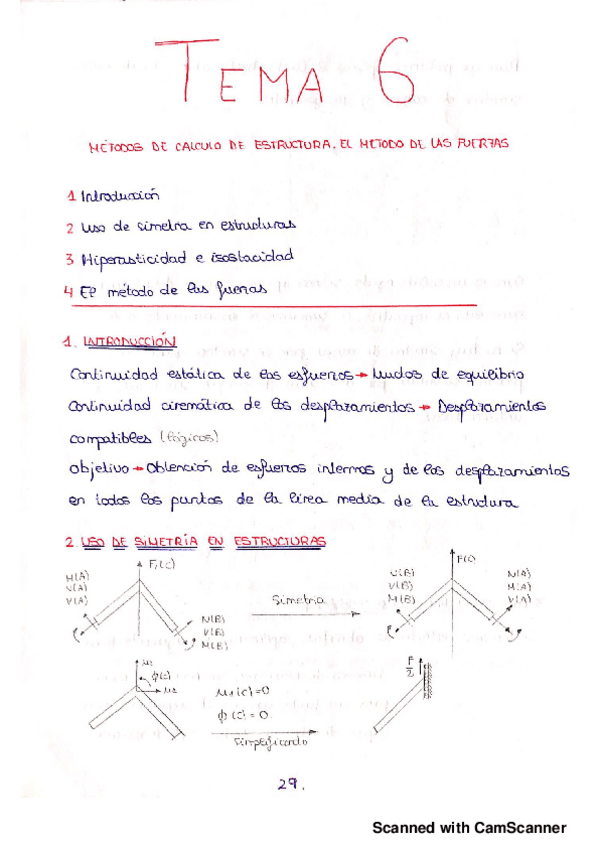 TEMA 6
MÉTODOS DE CALCULO DE ESTRUCTURA. EL METODO DE LAS FUERZAS
1 Introducción
2 Uso de simetria en estructuras
3 Hiperasticidad e isostacidad
4 El método de las fuerzas
1. INTRODUCCIÓN
Continuidad estática de los esfuerzos → Nudos de equilibrio
Continuidad cinemática de los desplazamientos → Desplazamientos
compatibles (lógicos)
objetivo → Obtención de esfuerzos internos y de los desplazamientos
en todos los puntos de la línea media de la estructura
2. USO DE SIMETRÍA EN ESTRUCTURAS
F,(c)
M(A)
N(A)
V(A)
N(B)
V(B)
M(B)
Simetria
F(c)
N(B)
V(B)
M(B)
N(A)
M(A)
V(A)
ϕ(c)
u1(c)=0
ϕ(c)=0
Simplificando
F/2
29.
Scanned with CamScanner